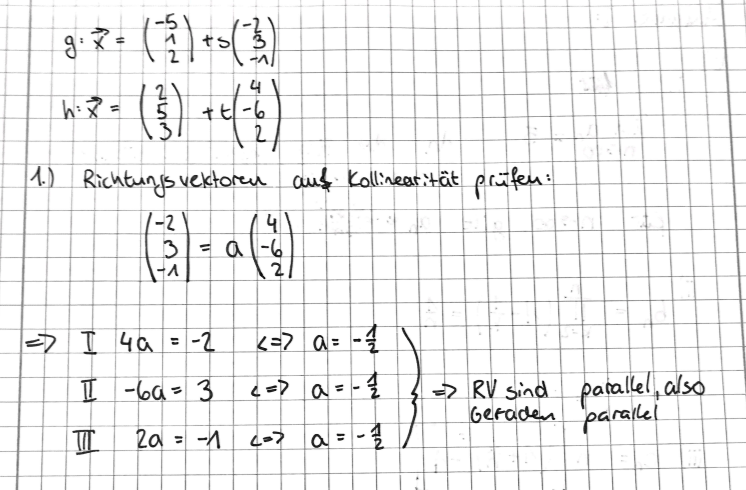 g: x⃗ = (-5 1 2) + s(-2 3 -1)
h: x⃗ = (2 5 3) + t(4 -6 2)
1.) Richtungsvektoren auf Kollinearität prüfen:
(-2 3 -1) = a (4 -6 2)
=> I 4a = -2 <=> a = -1/2
II -6a = 3 <=> a = -1/2
III 2a = -1 <=> a = -1/2
=> RV sind parallel, also
Geraden parallel